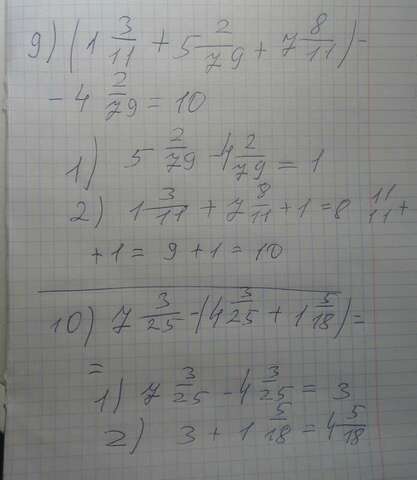 9) (1 3/11 + 5 2/79 + 7 8/11) -
- 4 2/79 = 10
1) 5 2/79 - 4 2/79 = 1
2) 1 3/11 + 7 8/11 + 1 = 8 11/11 +
+ 1 = 9 + 1 = 10
10) 7 3/25 - (4 3/25 + 1 5/18) =
=
1) 7 3/25 - 4 3/25 = 3
2) 3 + 1 5/18 = 4 5/18